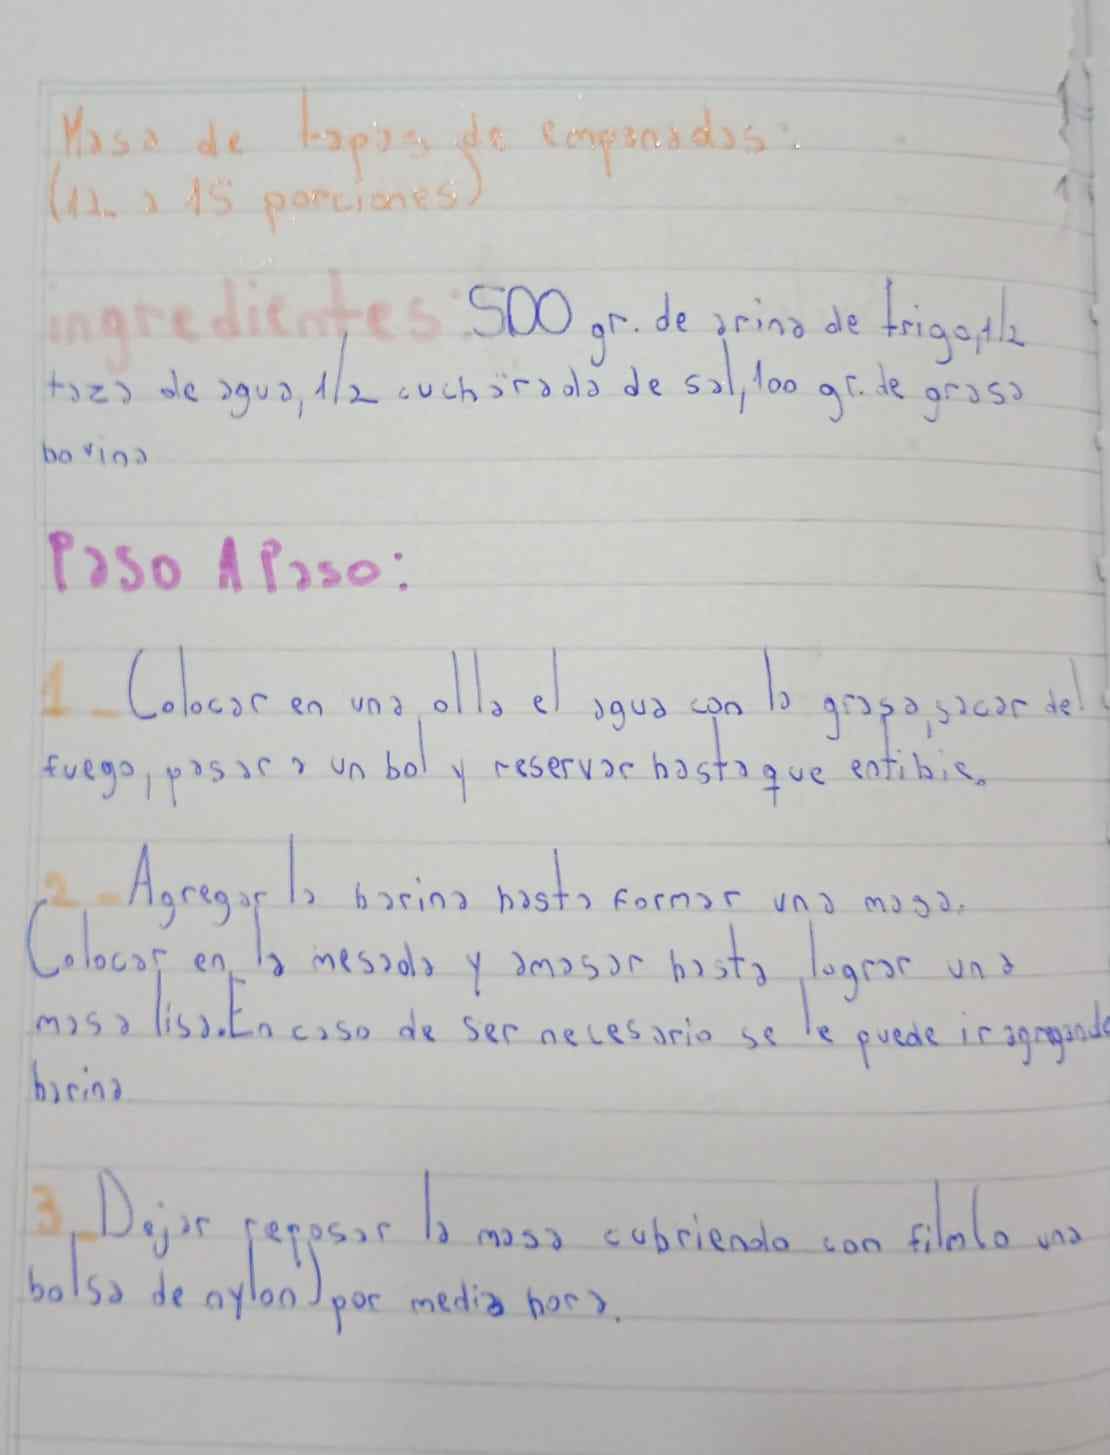 Masa de tapas de empanadas:
(12 a 15 porciones)
ingredientes: 500 gr. de arina de trigo, 1/2
taza de agua, 1/2 cucharada de sal, 100 gr. de grasa
bovina
Paso A Paso:
1_ Colocar en una olla el agua con la grasa, sacar del
fuego, pasar a un bol y reservar hasta que entibie.
2_ Agregar la harina hasta formar una masa.
Colocar en la mesada y amasar hasta lograr una
masa lisa. En caso de ser necesario se le puede ir agregando
harina
3_ Dejar reposar la masa cubriendo con film(o una
bolsa de nylon) por media hora.